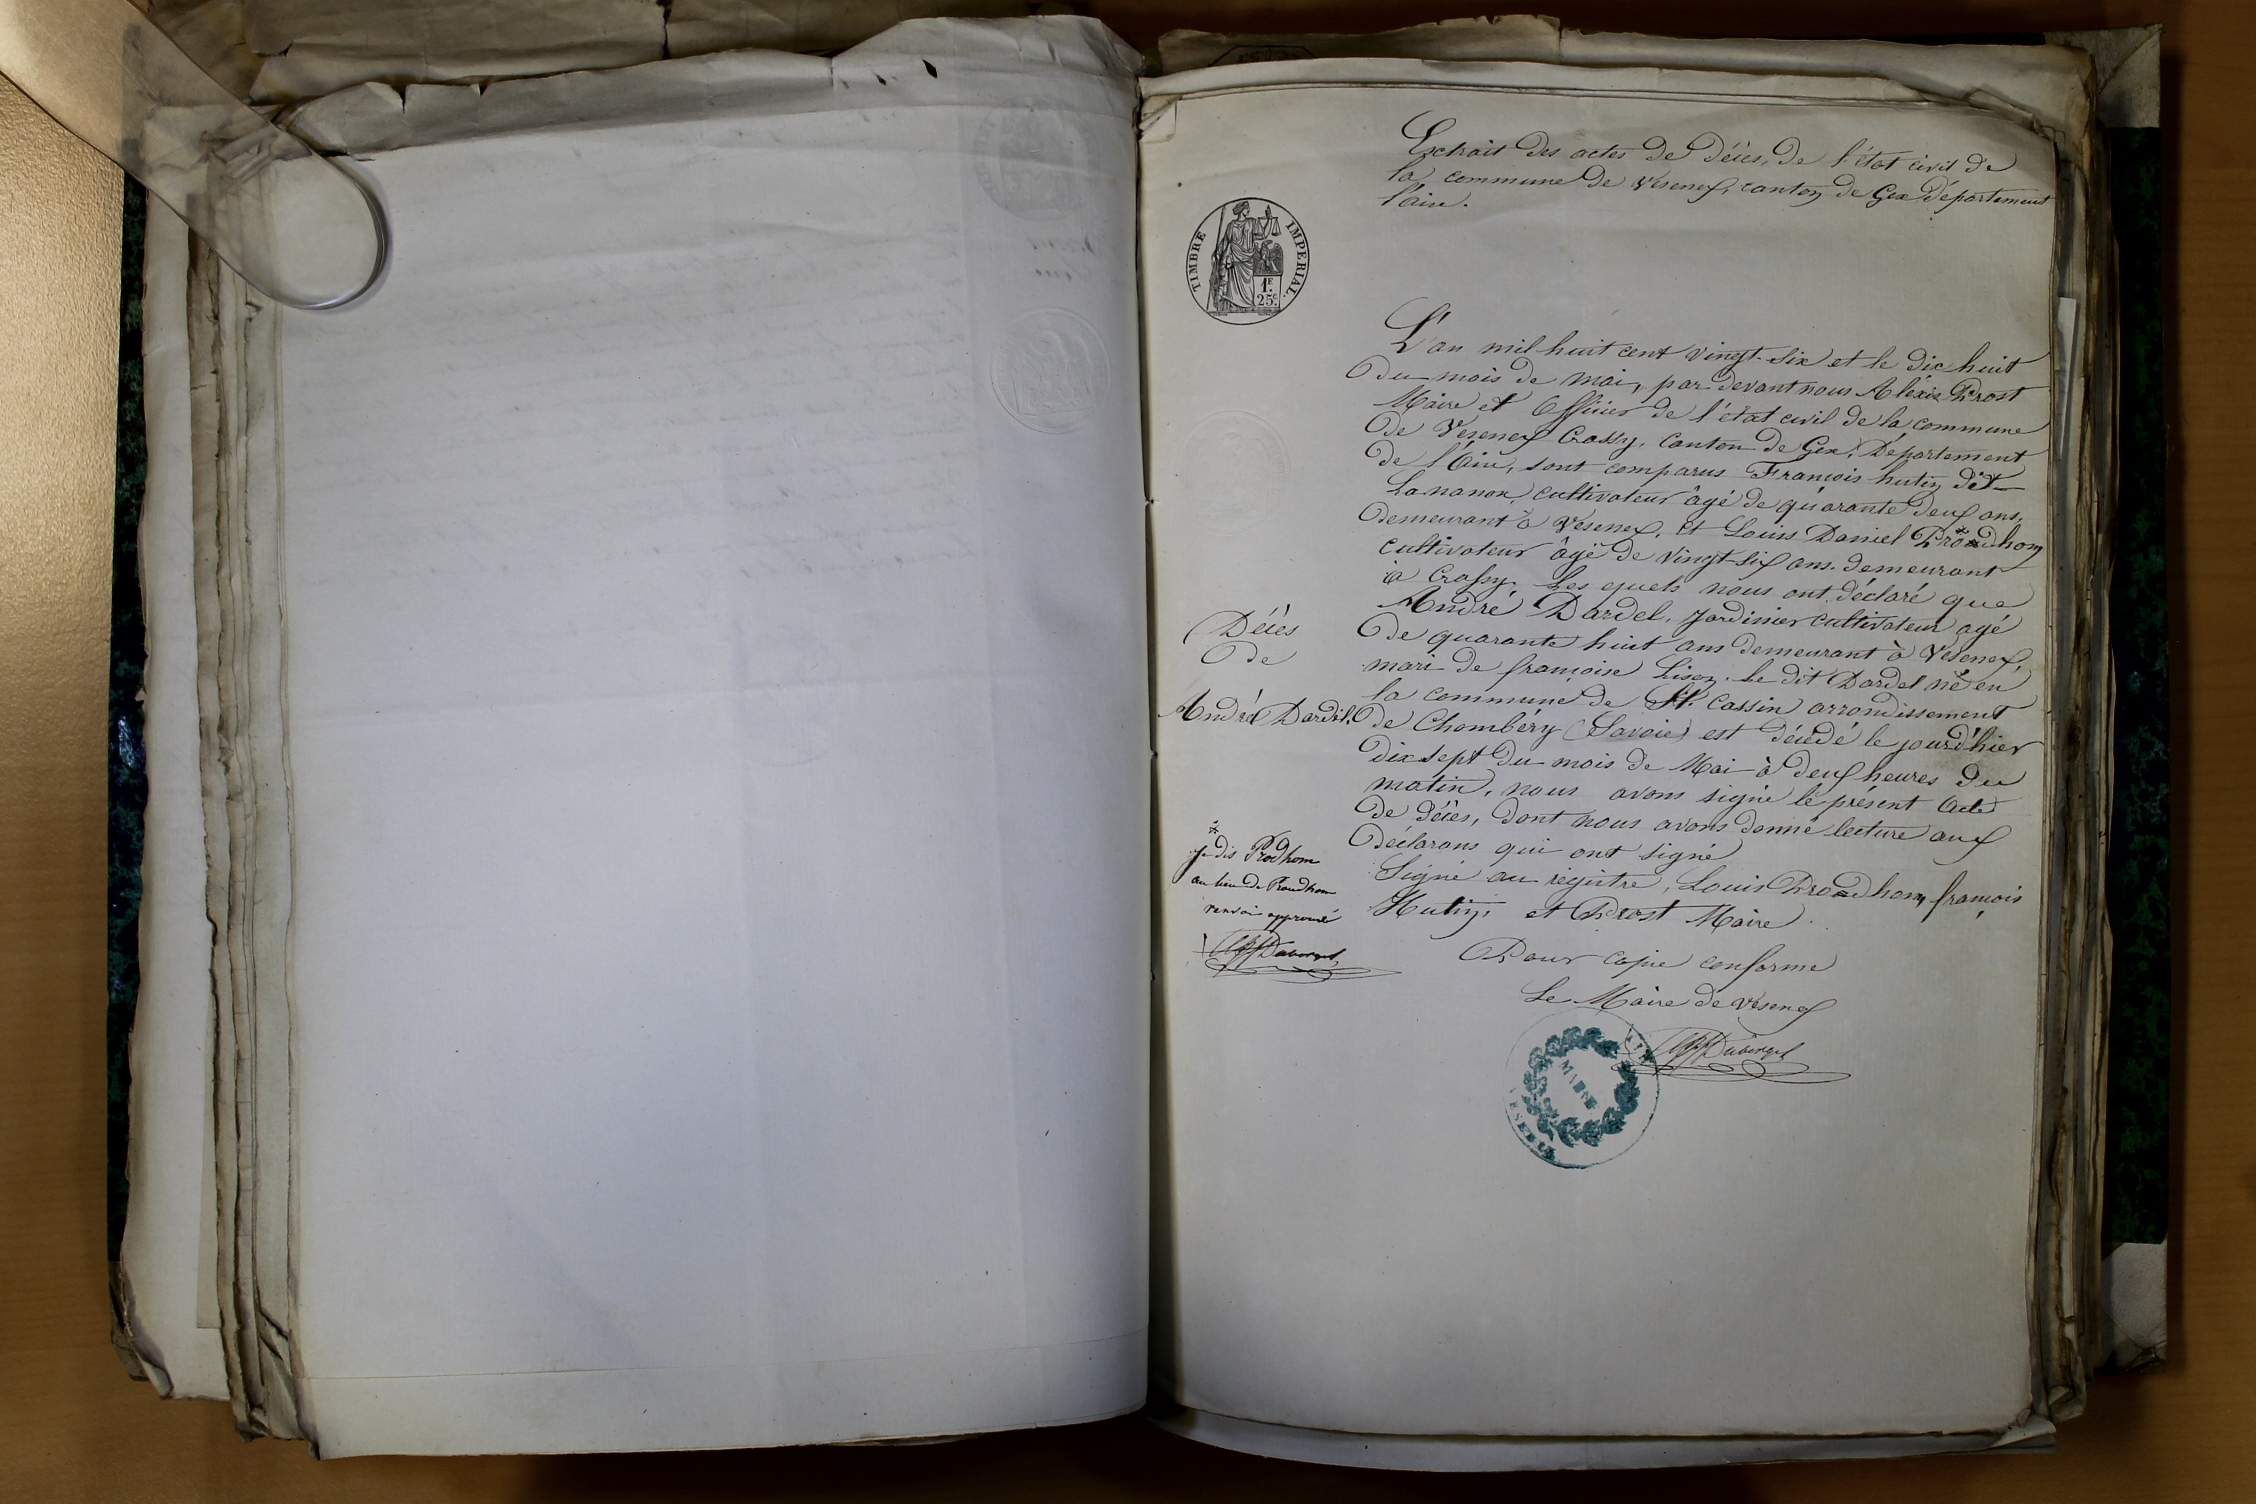 Extrait des actes de Décès, de l'état civil de
la commune de Vesenex, canton de Gex Département
l'Ain.
TIMBRE IMPERIAL.
1F.
25c.
L'an mil huit cent vingt-six et le dix huit
du mois de Mai, par devant nous Alexis Prost
Maire et Officier de l'état civil de la commune
de Vesenex Crassy, Canton de Gex, Département
de l'Ain, sont comparus François hutin dit
Lananon, cultivateur âgé de quarante deux ans,
demeurant à Vesenex, et Louis Daniel Prodhom
cultivateur âgé de vingt-six ans demeurant
à Crassy. Les quels nous ont déclaré que
André Dardel, Jardinier cultivateur agé
de quarante huit ans demeurant à Vesenex,
mari de françoise Lison. le dit Dardel né en
la commune de St. Cassin arrondissement
de Chambéry (Savoie) est décédé le jourd'hier
dix sept du mois de Mai à deux heures du
matin, nous avons signé le présent Acte
de décès, dont nous avons donné lecture aux
Déclarans qui ont signé
Signé au régistre, Louis Prodhom, françois
Hutin, et Prost Maire.
Décès
de
André Dardel.
*
Je dis Prodhom
au lieu de Proudhom
renvoi approuvé
Pour copie conforme
Le Maire de Vesenex
MAIRIE
AIN